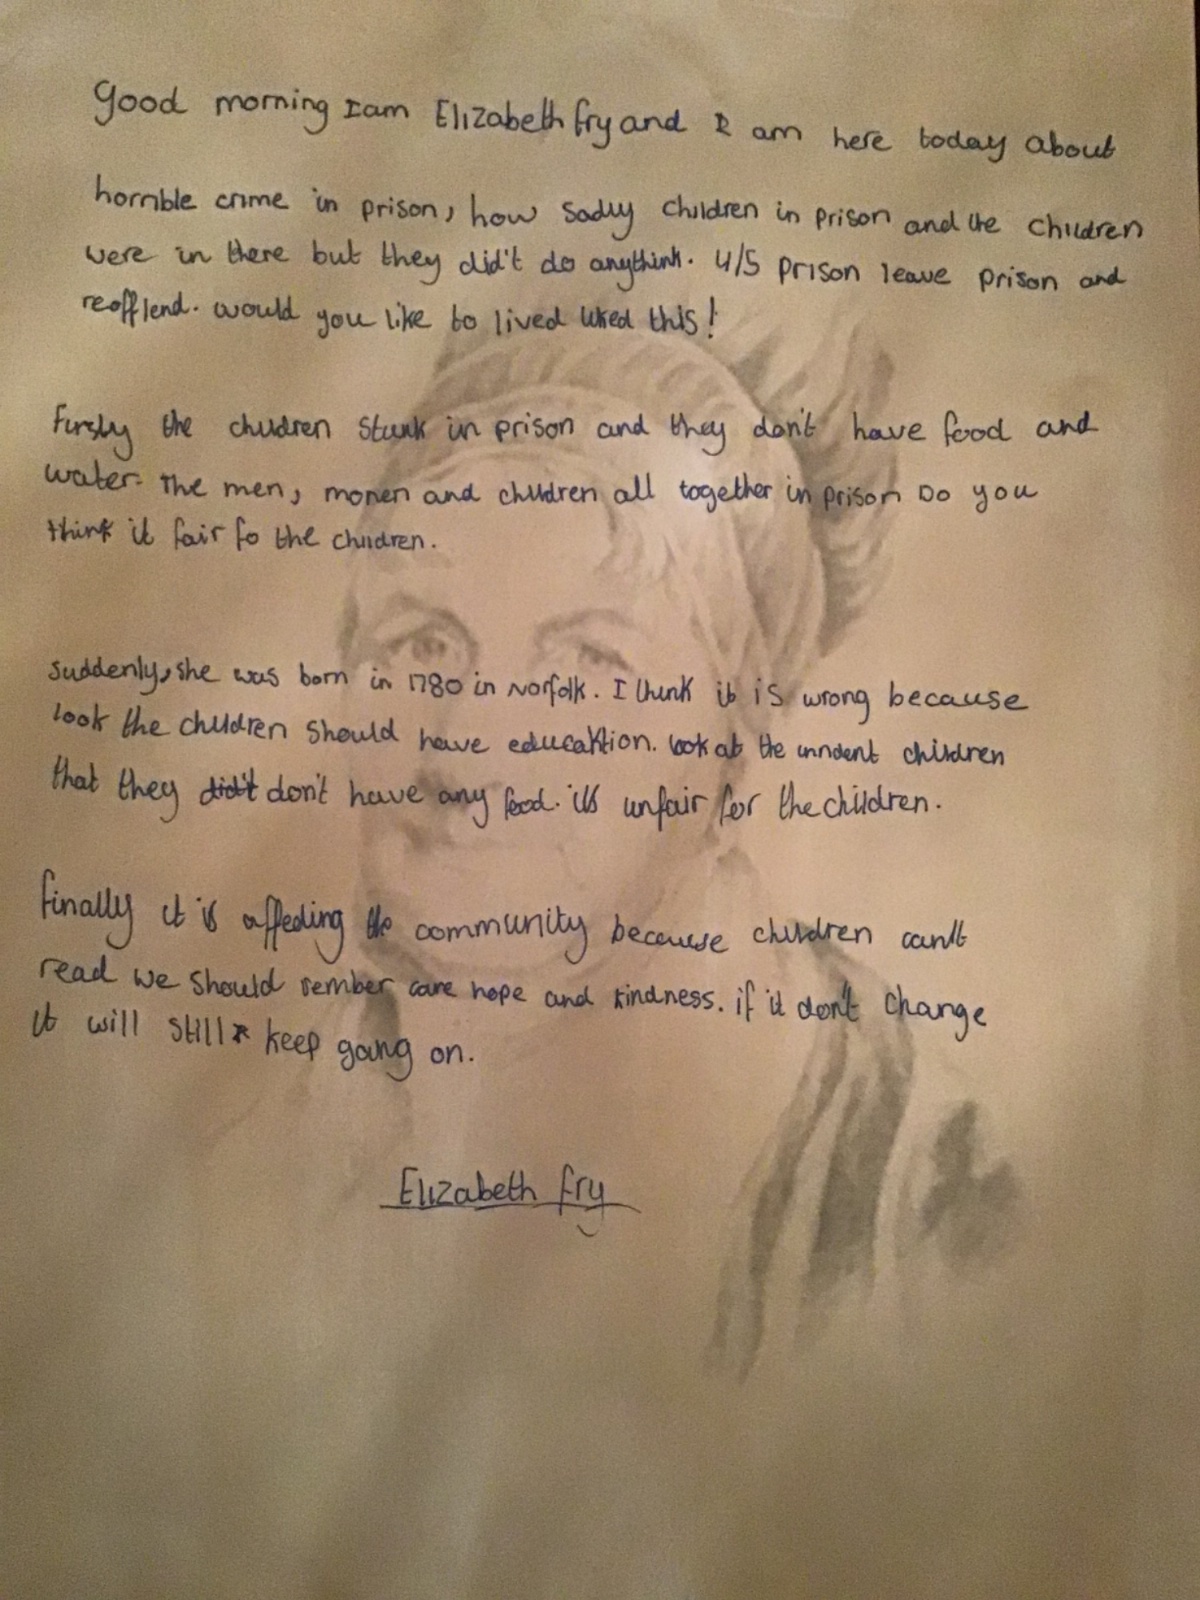 Good morning I am Elizabeth fry and I am here today about
horrible crime in prison, how sadly children in prison and the children
were in there but they did't do anythink. 4/5 prison leave prison and
reofflend. would you like to lived liked this!
Firsly the children stunk in prison and they don't have food and
water. The men, monen and children all together in prison Do you
think it fair fo the children.
suddenly, she was born in 1780 in Norfolk. I think it is wrong because
look the children should have educaktion. look at the inndent children
that they did't don't have any food. it's unfair for the children.
finally it is affeding the community because children can't
read we should rember care hope and kindness. if it don't change
it will still keep going on.
Elizabeth fry